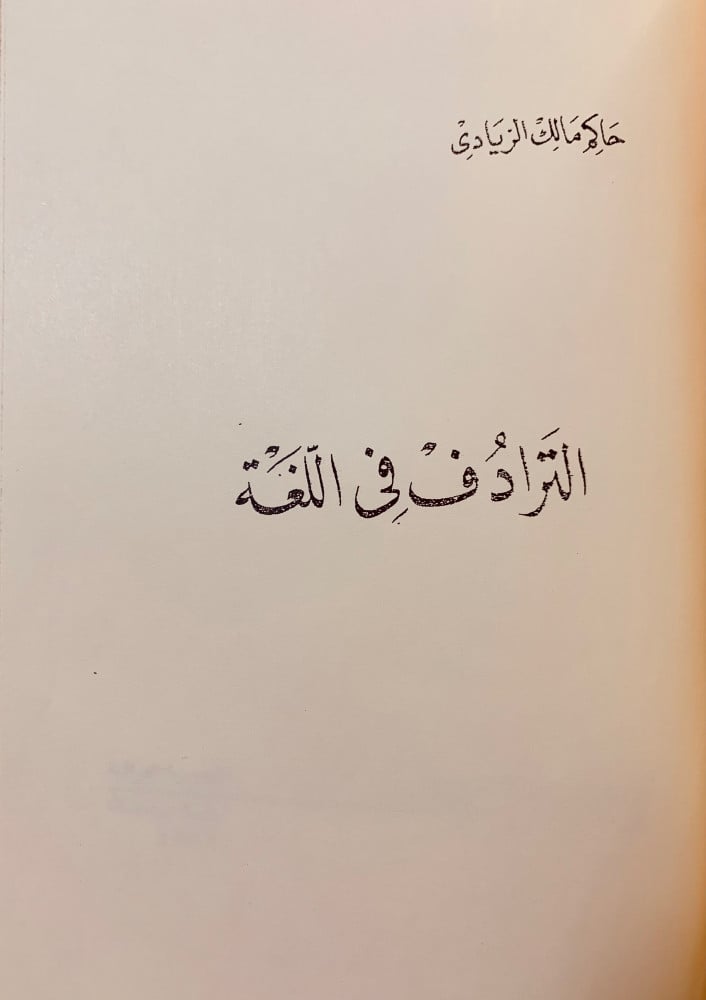 حَاكِم مَالِكْ الزيَادِىْ
التَرادُفْ فِى اللّغَة